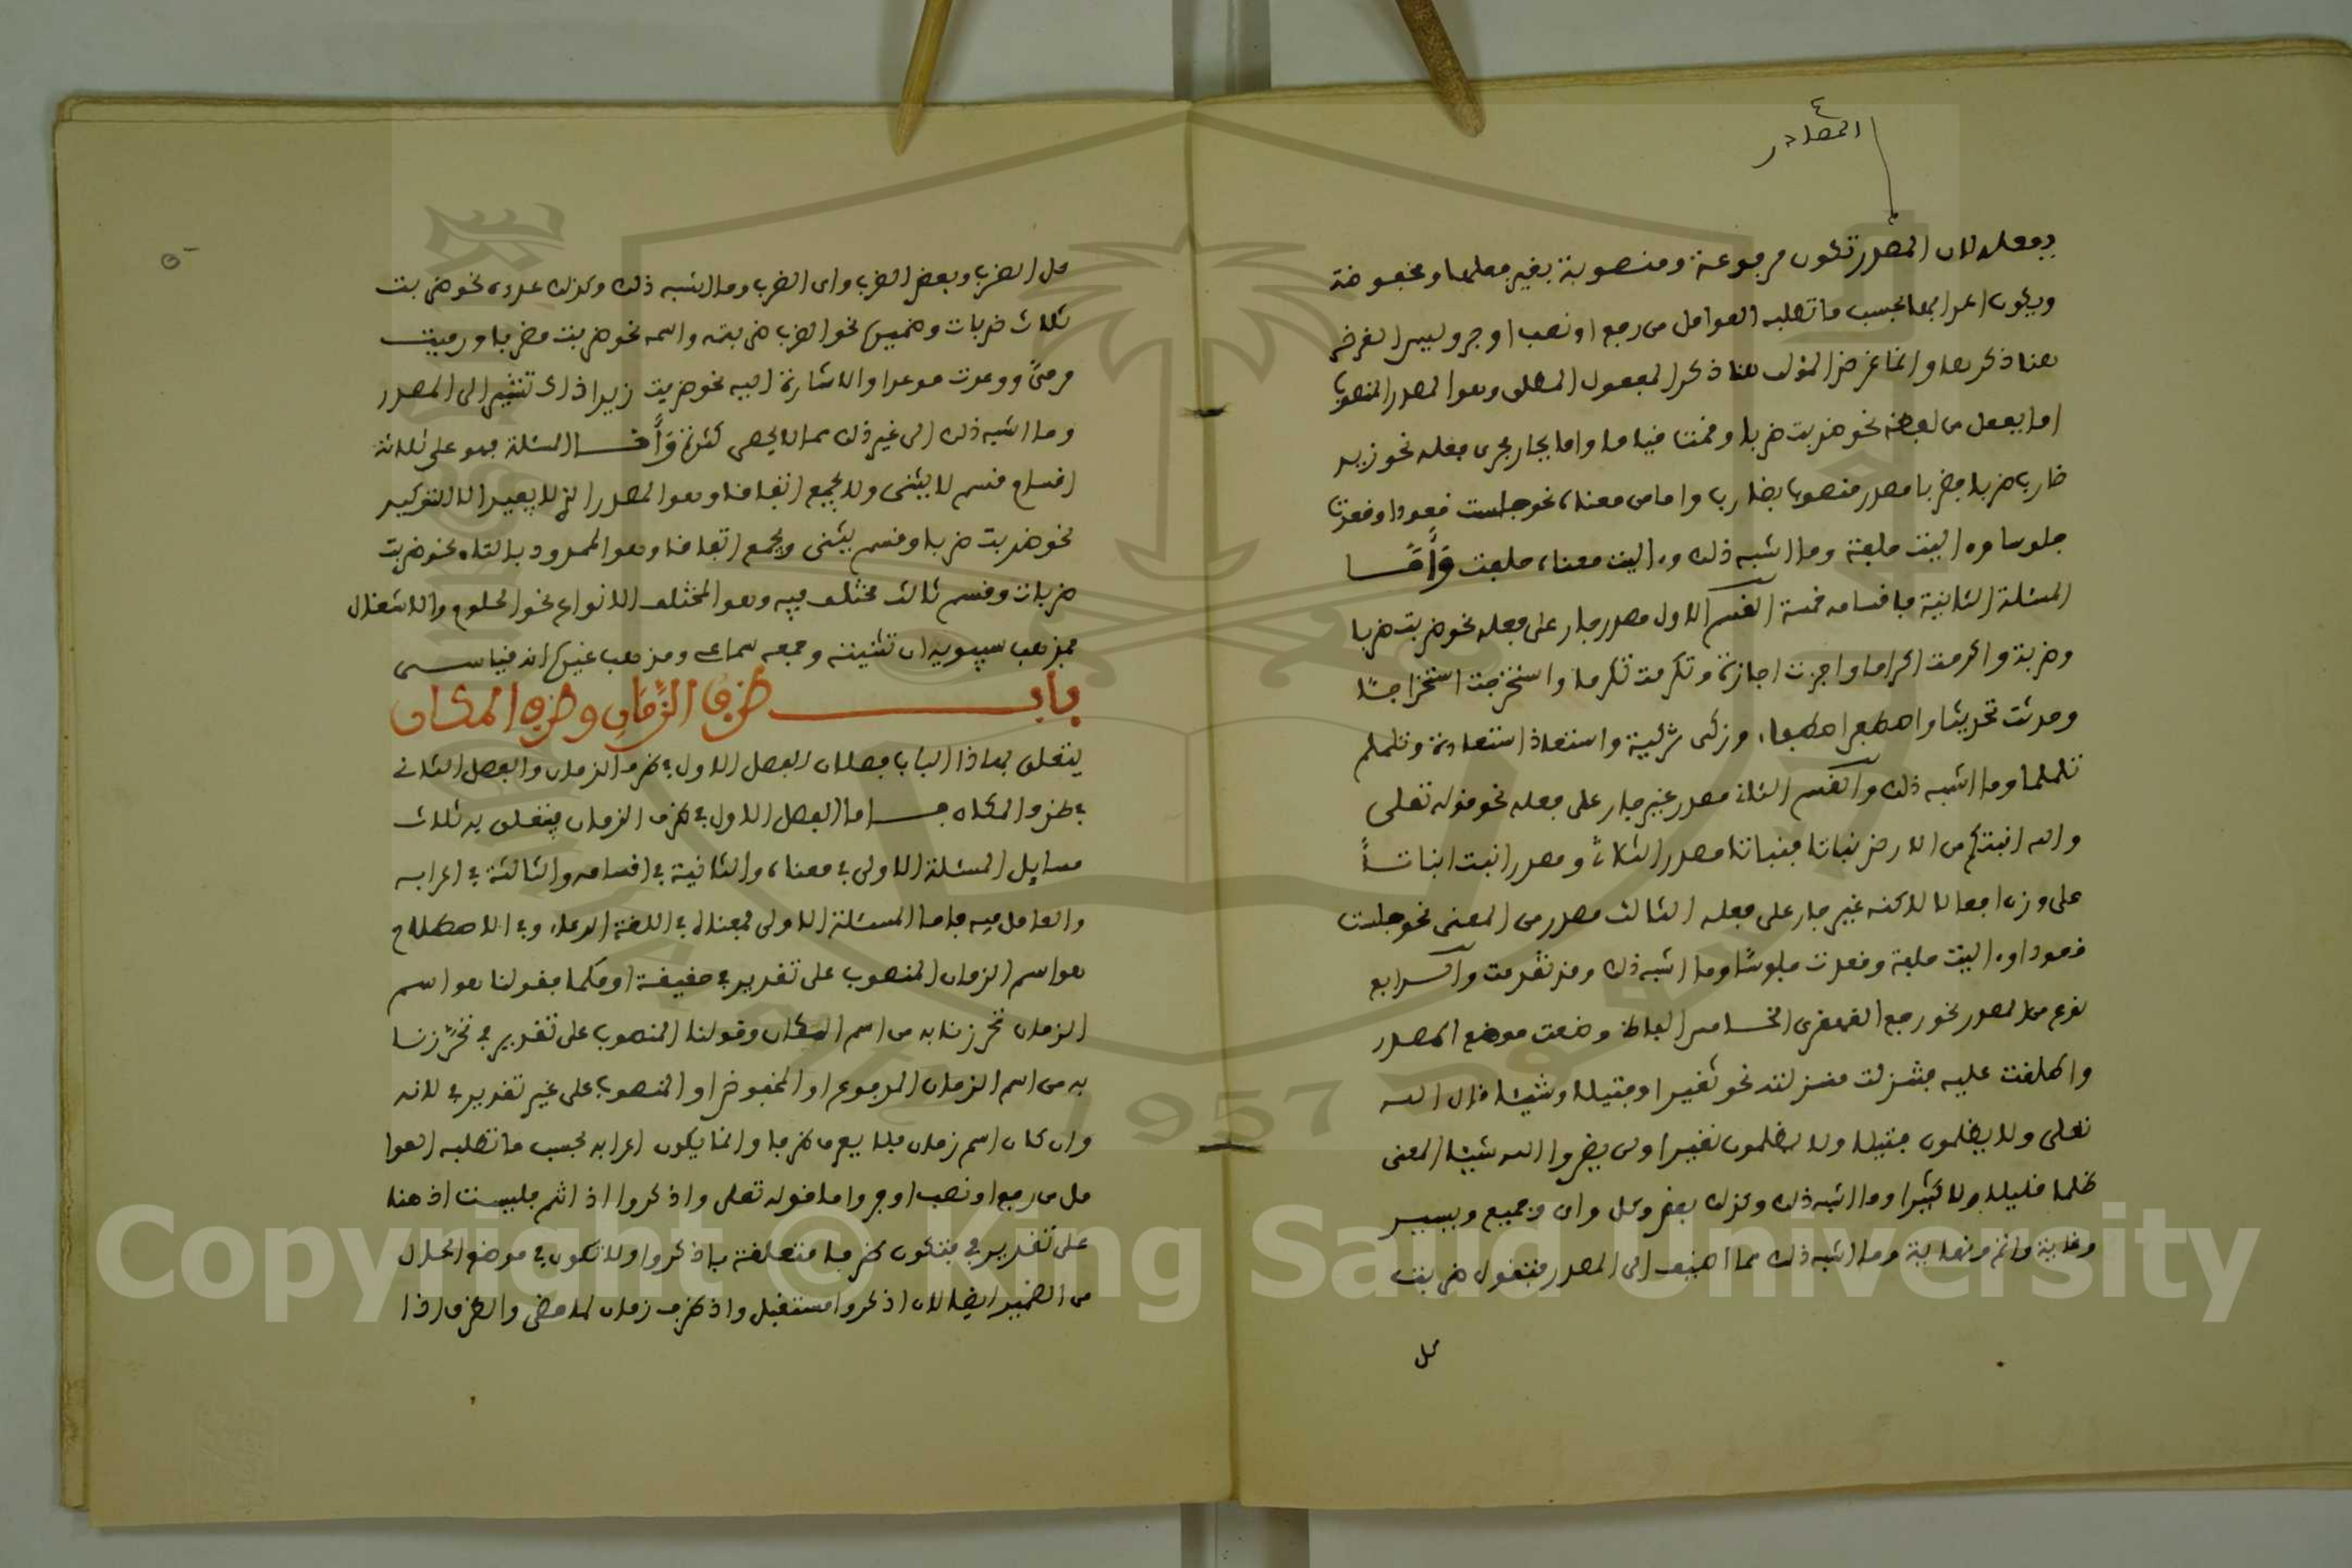 المصادر
بفعله لان المصدر تكون مرفوعة ومنصوبة بغير فعلها ومخفوضة
ويكون اعرابها بحسب ما تطلبه العوامل من رفع او نصب او جر وليس الغرض
هنا ذكرها وانما غرض المؤلف هنا ذكر المفعول المطلق وهو المصدر المنصوب
اما بفعل من لفظه نحو ضربت ضربا وقمت قياما واما بجار مجرى فعله نحو زيد
ضارب ضربا فضربا مصدر منصوب بضارب واما من معناه نحو جلست قعودا وقعدت
جلوسا وءاليت حلفة وما اشبه ذلك وءاليت معناه حلفت وأما
المسئلة الثانية فاقسامه خمسة القسم الاول مصدر جار على فعله نحو ضربت ضربا
وضربة واكرمت اكراما واجزت اجازة وتكرمت تكرما واستخرجت استخراجا
وحدثت تحديثا واصطبر اصطبارا وزكى تزكية واستعاذ استعاذة وتململ
تململا وما اشبه ذلك والقسم الثاني مصدر غير جار على فعله نحو قوله تعلى
والله انبتكم من الارض نباتا فنباتا مصدر الثلاثي ومصدر انبت انباتا
على وزن افعالا لاكنه غير جار على فعله الثالث مصدر من المعنى نحو جلست
قعودا وءاليت حلفة وقعدت جلوسا وما اشبه ذلك وقد تقدمت والرابع
نوع من المصدر نحو رجع القهقرى الخامس الفاظ وضعت موضع المصدر
واطلقت عليه فتنزلت منزلته نحو نقيرا وفتيلا وشيئا قال الله
تعلى ولا يظلمون فتيلا ولا يظلمون نقيرا ولن يضروا الله شيئا المعنى
ظلما قليلا ولا كثيرا وما اشبه ذلك وكذلك بعض وكل واي وجميع ويسير
وغاية ونهاية وما اشبه ذلك مما اضيف الى المصدر فتقول ضربت
كل
كل الضرب وبعض الضرب واي الضرب وما اشبه ذلك وكذلك عدده نحو ضربت
ثلاث ضربات وضميره نحو الضرب ضربته واسمه نحو ضربت مضربا ورميت
مرمىً ووعدت موعدا والاشارة اليه نحو ضربت زيدا ذاك تشير الى المصدر
وما اشبه ذلك الى غير ذلك مما لا يحصى كثرة وأما المسئلة فهو على ثلاثة
اقسام قسم لا يثنى ولا يجمع اتفاقا وهو المصدر الذي لا يفيد الا التوكيد
نحو ضربت ضربا وقسم يثنى ويجمع اتفاقا وهو المحدود بالتاء نحو ضربت
ضربات وقسم ثالث مختلف فيه وهو المختلف الانواع نحو الحلوم والاشغال
فمذهب سيبويه ان تثنيته وجمعه سماعي ومذهب غيره انه قياسي
باب ظرف الزمان وظرف المكان
يتعلق بهاذا الباب فصلان الفصل الاول في ظرف الزمان والفصل الثاني
في ظرف المكان فاما الفصل الاول في ظرف الزمان فيتعلق به ثلاث
مسايل المسئلة الاولى في معناه والثانية في اقسامه والثالثة في اعرابه
والعامل فيه فاما المسئلة الاولى فمعناه في اللغة الوعاء وفي الاصطلاح
هو اسم الزمان المنصوب على تقدير في حقيقة او حكما فقولنا هو اسم
الزمان تحرزنا به من اسم المكان وقولنا المنصوب على تقدير في تحرزنا
به من اسم الزمان المرفوع او المخفوض او المنصوب على غير تقدير في لانه
وان كان اسم زمان فلا يعرب ظرفا وانما يكون اعرابه بحسب ما تطلبه العوا
مل من رفع او نصب او جر واما قوله تعلى واذكروا اذ انتم فليست اذ هنا
على تقدير في فتكون ظرفا متعلقة باذكروا ولا تكون في موضع الحال
من الضمير ايضا لان اذكروا مستقبل واذ ظرف زمان لما مضى والظرف اذا